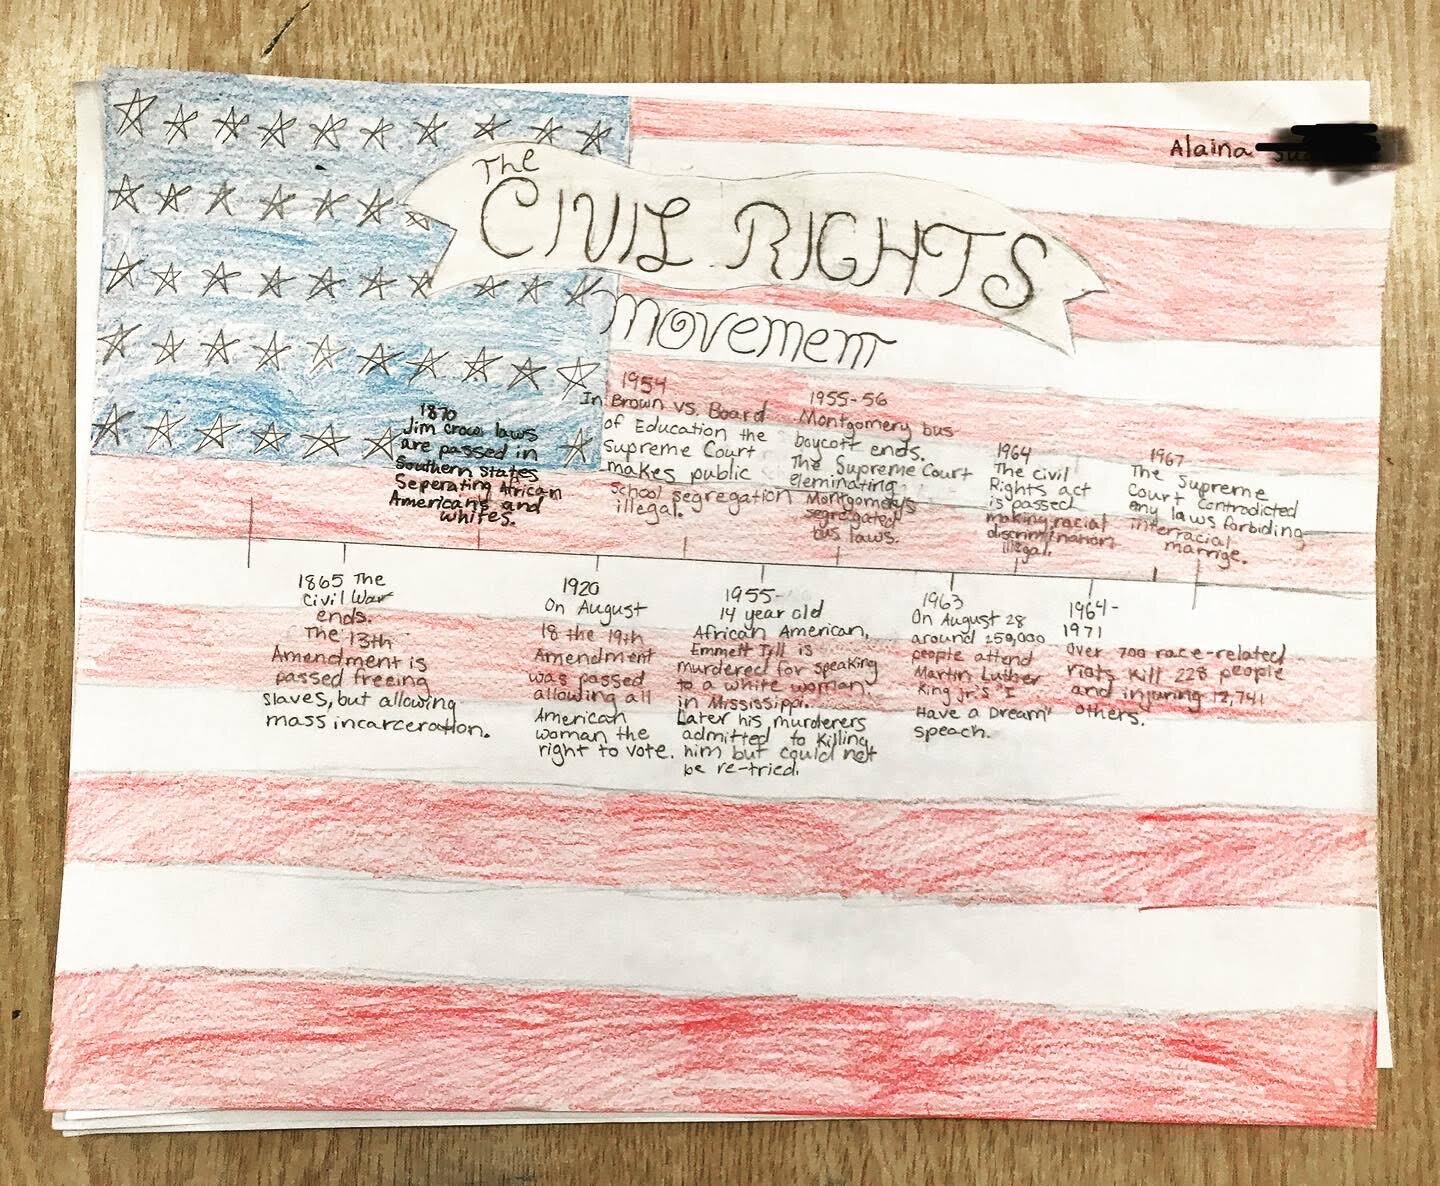 Alaina
The
CIVIL RIGHTS
movement
1870
Jim crow laws
are passed in
Southern states
Seperating African
Americans and
whites.
1954
In Brown vs. Board
of Education the
Supreme Court
makes public
School segregation
illegal.
1955-56
Montgomery bus
boycott ends.
The Supreme Court
eleminating
Montgomery's
segregated
bus laws.
1964
The civil
Rights act
is passed
making racial
discrimination
illegal.
1967
The Supreme
Court Contradicted
any laws forbiding
interracial
marrige.
1865 The
Civil War
ends.
The 13th
Amendment is
passed freeing
slaves, but allowing
mass incarceration.
1920
On August
18 the 19th
Amendment
was passed
allowing all
American
woman the
right to vote.
1955-
14 year old
African American,
Emmett Till is
murdered for speaking
to a white woman
in Mississippi.
Later his murderers
admitted to killing
him but could not
be re-tried.
1963
On August 28
around 250,000
people attend
Martin Luther
King jr.'s "I
Have a Dream"
speach.
1964-
1971
Over 700 race-related
riots kill 228 people
and injuring 12,741
others.